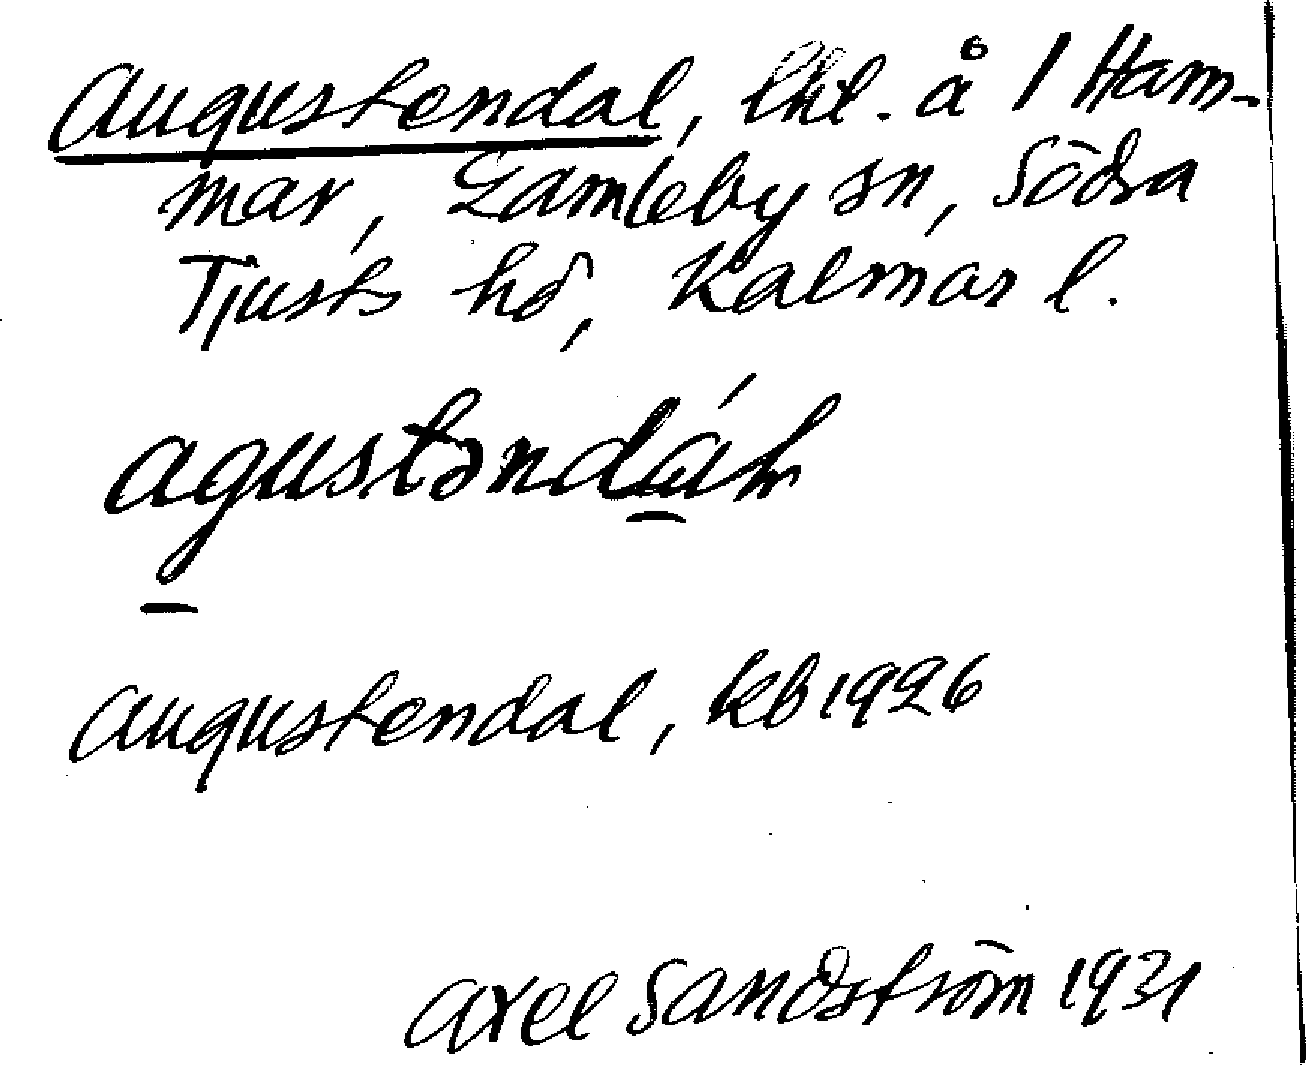 Augustendal, lht. å 1 Ham-
mar, Gamleby sn, Södra
Tjusts hd, Kalmar l.
agustəndá̱l
Augustendal, kb 1926
Axel Sandström 1931